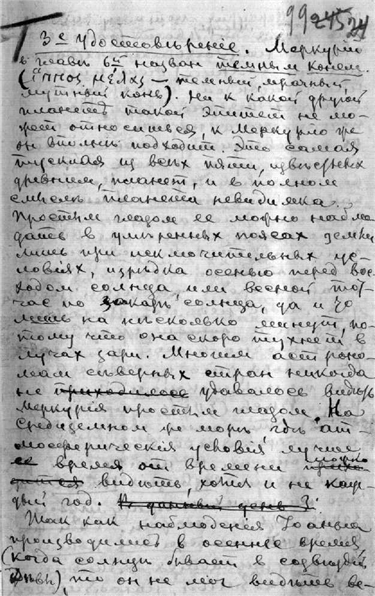 99 245 24
3е удостовѣренiе. Меркурiй
в главѣ 6й назван темным конем.
(ἵππος μέλας — темный, мрачный,
мутный конь). Ни к какой другой
планетѣ такой эпитет не мо-
жет относиться, к Меркурiю же
он вполнѣ подходит. Это самая
тусклая из всѣх пяти, извѣстных
древним, планет, и в полном
смыслѣ планета невидимка.
Простым глазом ее можно наблю
дать в умѣренных поясах земли
лишь при исключительных ус-
ловiях, изрѣдка осенью перед вос-
ходом солнца, или весной тот-
час по закатѣ солнца, да и то
лишь на нѣсколько минут, по-
тому что она скоро тухнет в
лучах зари. Многим астроно-
мам сѣверных стран никогда
не приходилось удавалось видѣть
Меркурiя простым глазом. На
Средиземном же морѣ, гдѣ ат-
мосферическiя условiя лучше,
ее время от времени можно
видѣть, хотя и не каж-
дый год. В данный день
Так как наблюденiя Iоанна
производились в осеннее время
(когда солнце бывает в созвѣздiи
Дѣвы), то он не мог видѣть ве-